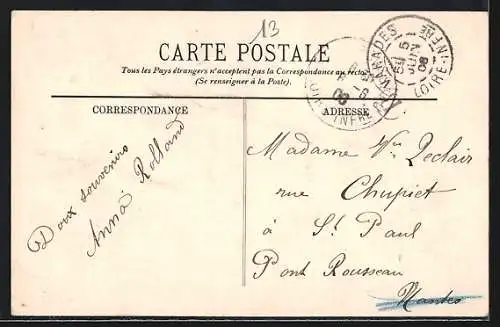 13
CARTE POSTALE
Tous les Pays étrangers n'acceptent pas la Correspondance au recto
(Se renseigner à la Poste).
CORRESPONDANCE
ADRESSE
LOIRE-INFRE
Doux souvenirs
Anna Rolland
Madame Vve Leclair
rue Chupiet
à St Paul
Pont Rousseau
Nantes